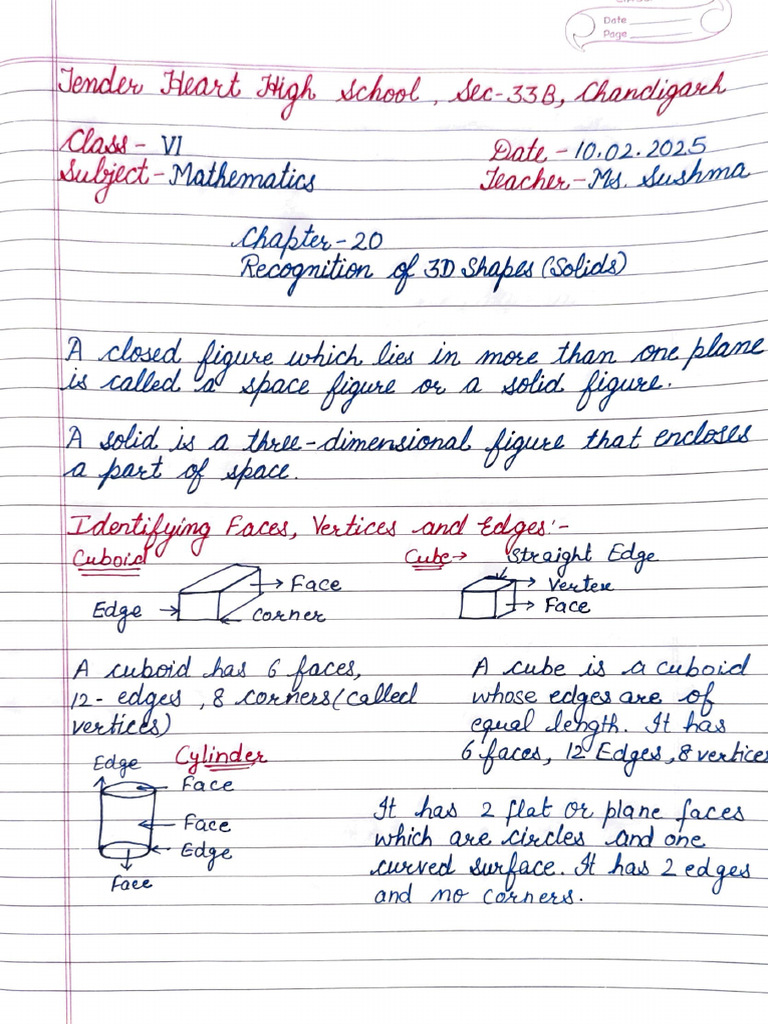 Date
Page
Tender Heart High School, Sec-33B, Chandigarh
Class - VI
Date - 10.02.2025
Subject - Mathematics
Teacher - Ms. Sushma
Chapter-20
Recognition of 3D Shapes (Solids)
A closed figure which lies in more than one plane
is called a space figure or a solid figure.
A solid is a three-dimensional figure that encloses
a part of space.
Identifying Faces, Vertices and Edges:-
Cuboid
Face
Edge
Corner
Cube→ Straight Edge
Vertex
Face
A cuboid has 6 faces,
12- edges, 8 corners (called
vertices)
A cube is a cuboid
whose edges are of
equal length. It has
6 faces, 12 Edges, 8 vertices
Cylinder
Edge
Face
Face
Edge
Face
It has 2 flat or plane faces
which are circles and one
curved surface. It has 2 edges
and no corners.